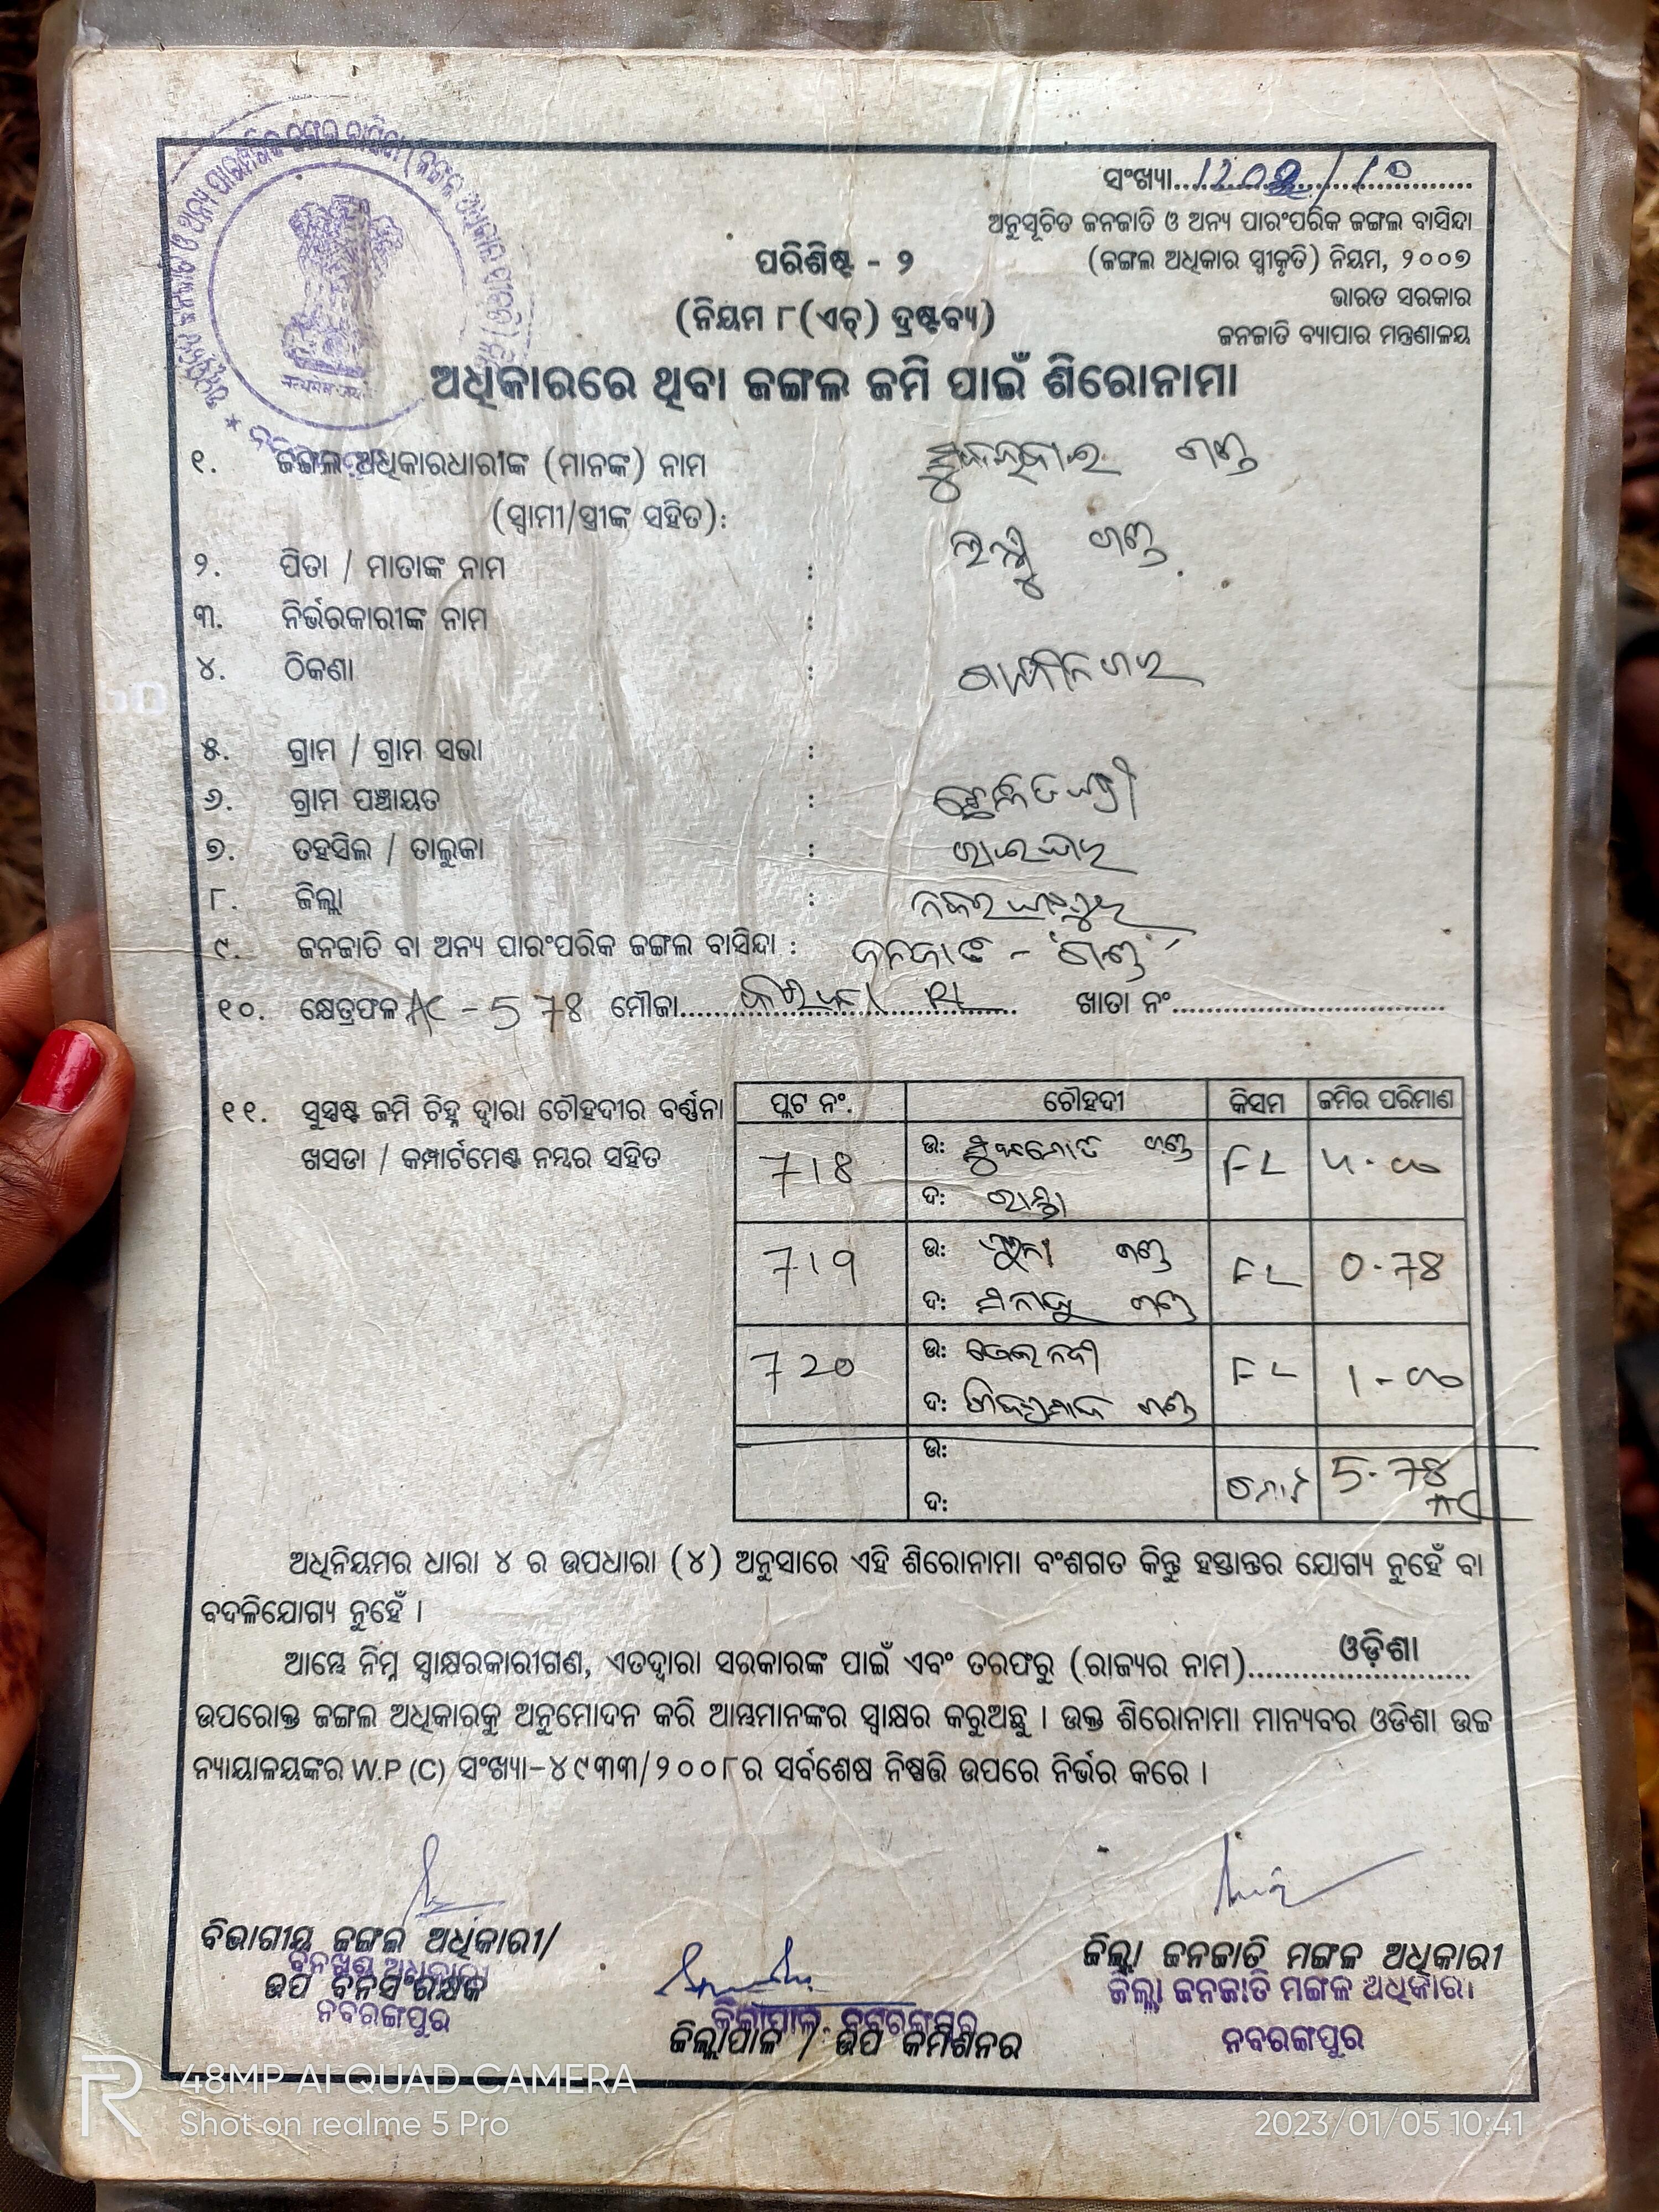 ସଂଖ୍ୟା
ଅନୁସୂଚିତ ଜନଜାତି ଓ ଅନ୍ୟ ପାରଂପରିକ ଜଙ୍ଗଲ ବାସିନ୍ଦା
(ଜଙ୍ଗଲ ଅଧିକାର ସ୍ୱୀକୃତି) ନିୟମ, ୨୦୦୭
ଭାରତ ସରକାର
ଜନଜାତି ବ୍ୟାପାର ମନ୍ତ୍ରଣାଳୟ
ପରିଶିଷ୍ଟ - ୨
(ନିୟମ ୮(ଏଚ୍) ଦ୍ରଷ୍ଟବ୍ୟ)
ଅଧିକାରରେ ଥିବା ଜଙ୍ଗଲ ଜମି ପାଇଁ ଶିରୋନାମା
୧. ଜଙ୍ଗଲ ଅଧିକାରଧାରୀଙ୍କ (ମାନଙ୍କ) ନାମ ଗଣ୍ଡ
(ସ୍ୱାମୀ/ସ୍ତ୍ରୀଙ୍କ ସହିତ):
୨. ପିତା / ମାତାଙ୍କ ନାମ : ଗଣ୍ଡ
୩. ନିର୍ଭରକାରୀଙ୍କ ନାମ :
୪. ଠିକଣା :
୫. ଗ୍ରାମ / ଗ୍ରାମ ସଭା :
୬. ଗ୍ରାମ ପଞ୍ଚାୟତ :
୭. ତହସିଲ / ତାଲୁକା : ରାଇଘର
୮. ଜିଲ୍ଲା : ନବରଙ୍ଗପୁର
୯. ଜନଜାତି ବା ଅନ୍ୟ ପାରଂପରିକ ଜଙ୍ଗଲ ବାସିନ୍ଦା : ଜନଜାତି - ଗଣ୍ଡ
୧୦. କ୍ଷେତ୍ରଫଳ AC - 5 78 ମୌଜା ଖାତା ନଂ
୧୧. ସୁସ୍ପଷ୍ଟ ଜମି ଚିହ୍ନ ଦ୍ୱାରା ଚୌହଦୀର ବର୍ଣ୍ଣନା
ଖସଡା / କମ୍ପାର୍ଟମେଣ୍ଟ ନମ୍ବର ସହିତ
ପ୍ଲଟ ନଂ. ଚୌହଦୀ କିସମ ଜମିର ପରିମାଣ
718 ଉ: ଗଣ୍ଡ FL
ଦ: ରାସ୍ତା
719 ଉ: ଗଣ୍ଡ FL 0.78
ଦ: ଗଣ୍ଡ
720 ଉ: ତେଲ ନଦୀ FL 1-00
ଦ: ଗଣ୍ଡ
ଉ: 5.78
ଦ: AC
ଅଧିନିୟମର ଧାରା ୪ ର ଉପଧାରା (୪) ଅନୁସାରେ ଏହି ଶିରୋନାମା ବଂଶଗତ କିନ୍ତୁ ହସ୍ତାନ୍ତର ଯୋଗ୍ୟ ନୁହେଁ ବା
ବଦଳିଯୋଗ୍ୟ ନୁହେଁ ।
ଆମ୍ଭେ ନିମ୍ନ ସ୍ୱାକ୍ଷରକାରୀଗଣ, ଏତଦ୍ୱାରା ସରକାରଙ୍କ ପାଇଁ ଏବଂ ତରଫରୁ (ରାଜ୍ୟର ନାମ) ଓଡ଼ିଶା
ଉପରୋକ୍ତ ଜଙ୍ଗଲ ଅଧିକାରକୁ ଅନୁମୋଦନ କରି ଆମ୍ଭମାନଙ୍କର ସ୍ୱାକ୍ଷର କରୁଅଛୁ । ଉକ୍ତ ଶିରୋନାମା ମାନ୍ୟବର ଓଡିଶା ଉଚ୍ଚ
ନ୍ୟାୟାଳୟଙ୍କର W.P (C) ସଂଖ୍ୟା-୪୯୩୩/୨୦୦୮ର ସର୍ବଶେଷ ନିଷ୍ପତ୍ତି ଉପରେ ନିର୍ଭର କରେ ।
ବିଭାଗୀୟ ଜଙ୍ଗଲ ଅଧିକାରୀ/
ଉପ ବନସଂରକ୍ଷକ
ନବରଙ୍ଗପୁର
ଜିଲ୍ଲାପାଳ, ନବରଙ୍ଗପୁର
ଜିଲ୍ଲାପାଳ / ଉପ କମିଶନର
ଜିଲ୍ଲା ଜନଜାତି ମଙ୍ଗଳ ଅଧିକାରୀ
ଜିଲ୍ଲା ଜନଜାତି ମଙ୍ଗଳ ଅଧିକାରୀ
ନବରଙ୍ଗପୁର
48MP AI QUAD CAMERA
Shot on realme 5 Pro
2023/01/05 10:41